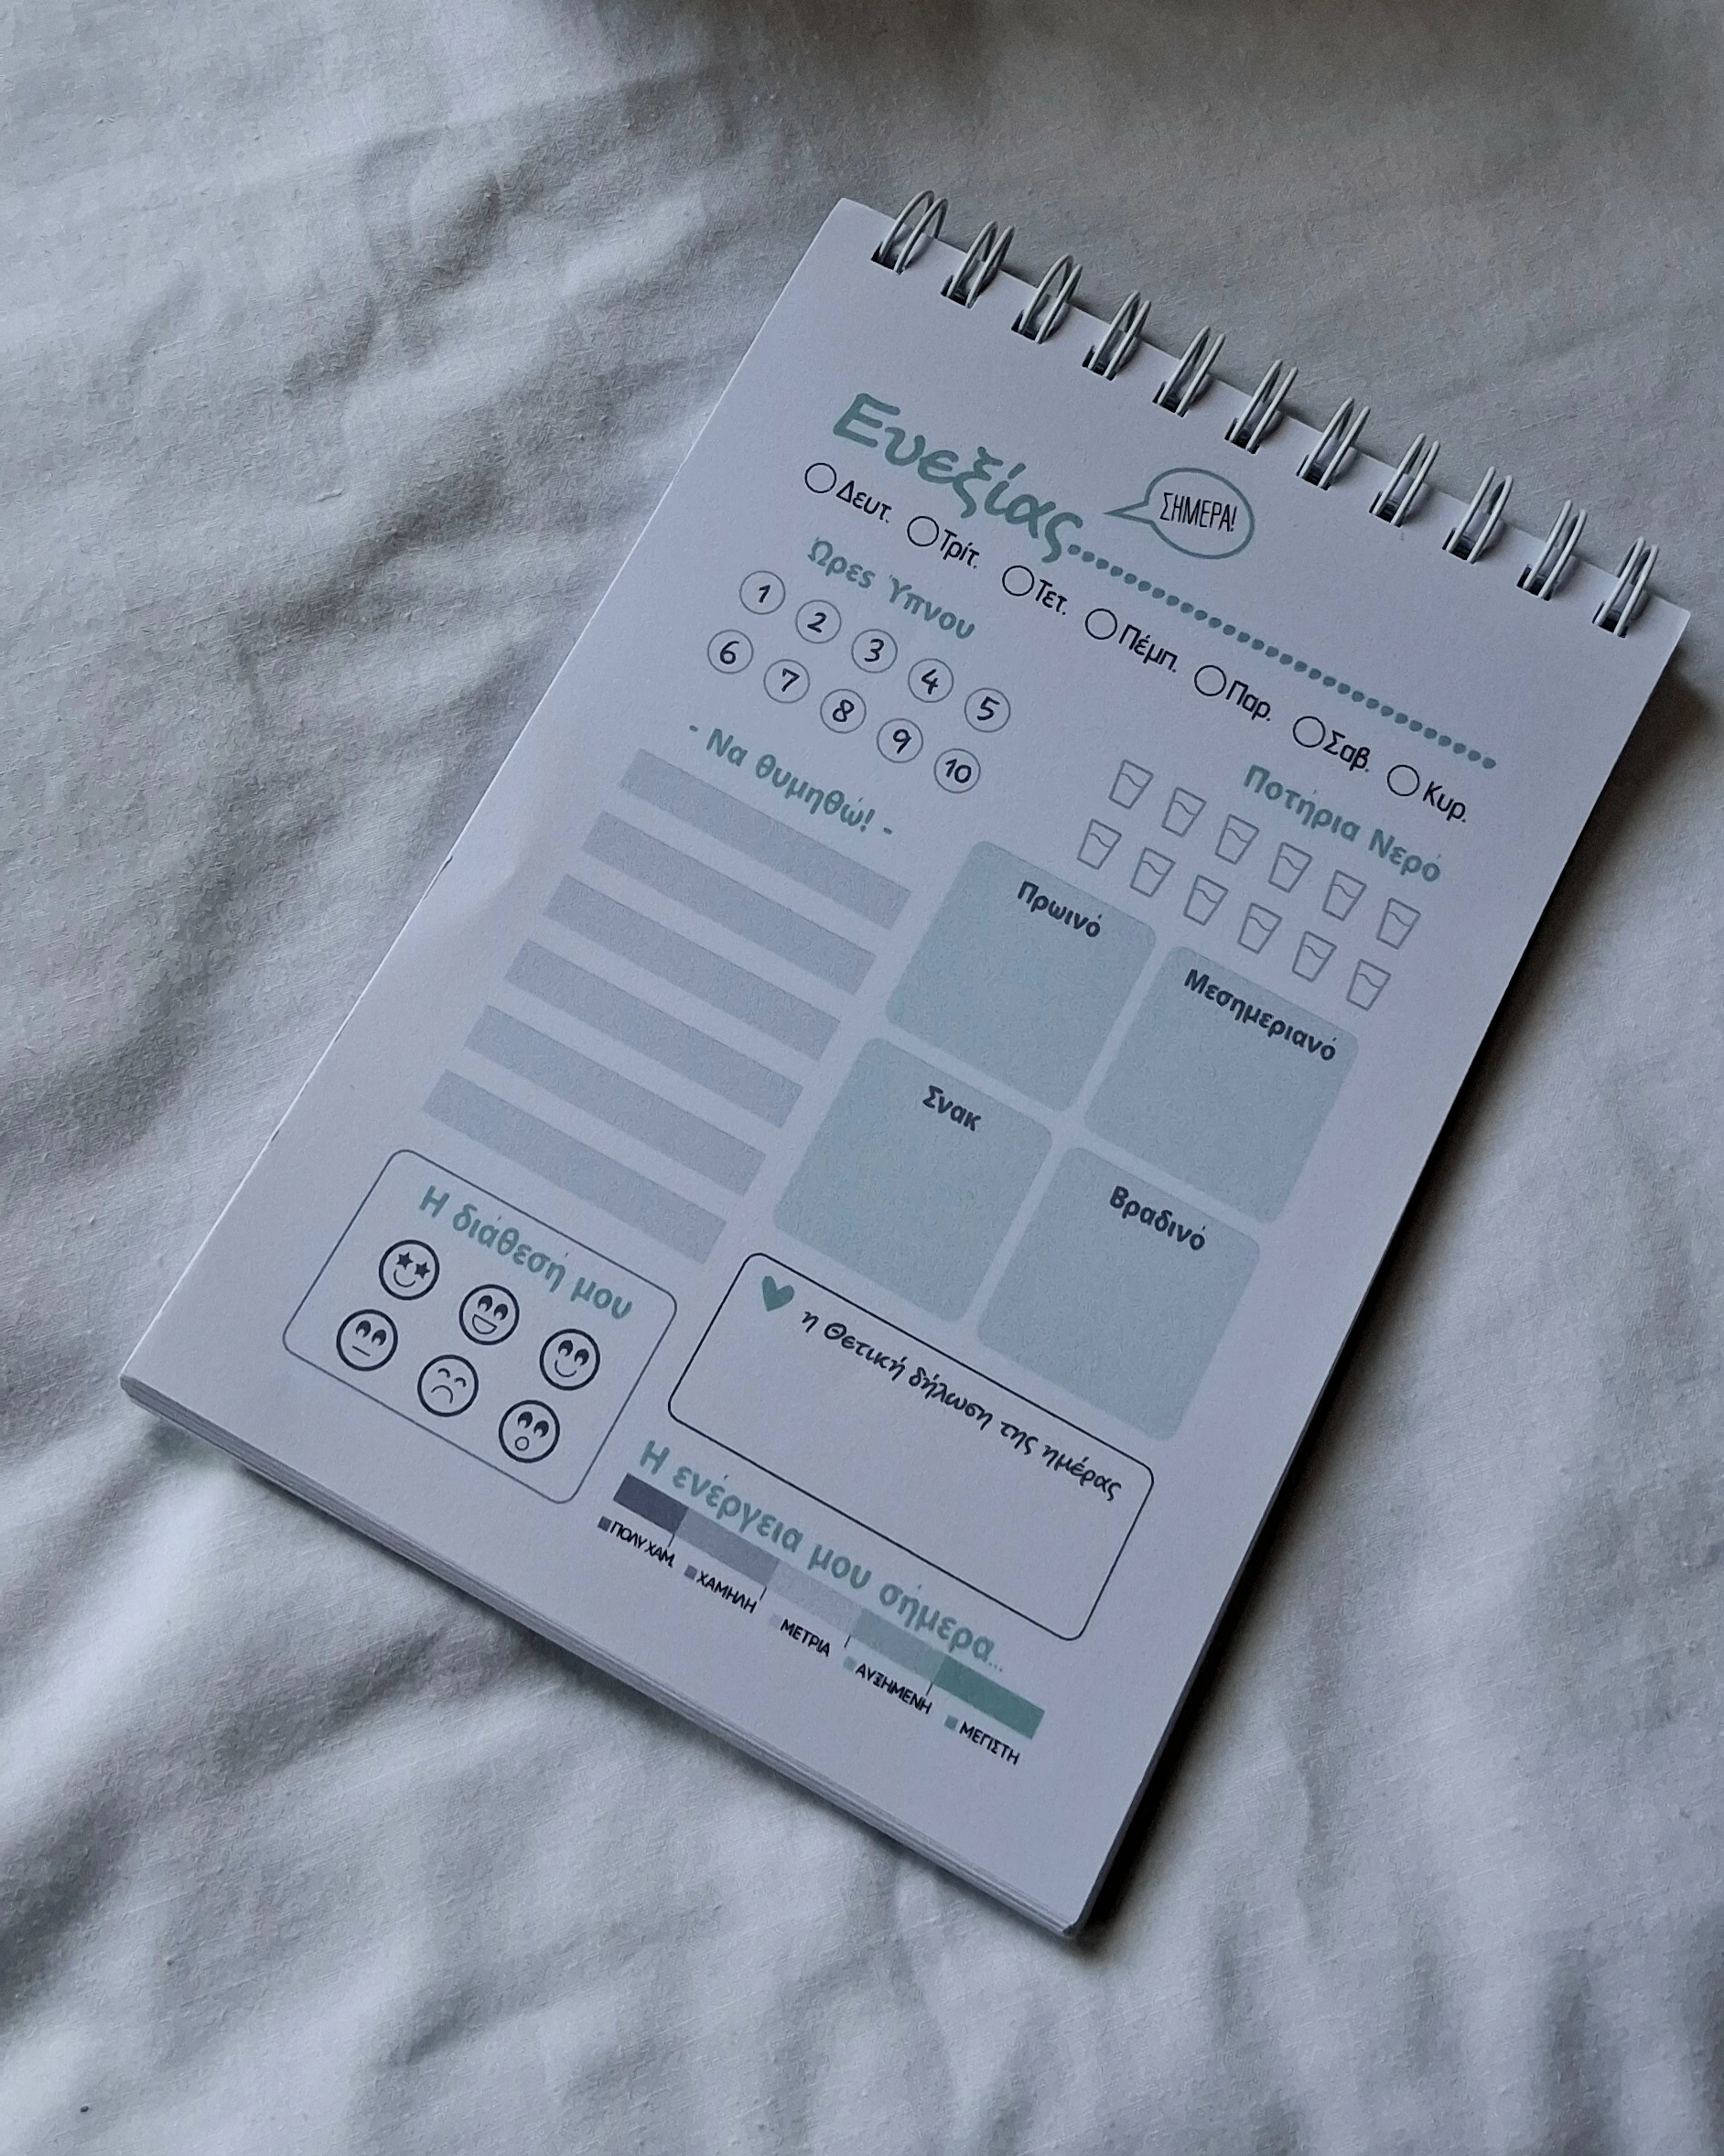 Ευεξίας
ΣΗΜΕΡΑ!
Δευτ. Τρίτ. Τετ. Πέμπ. Παρ. Σαβ. Κυρ.
Ώρες Ύπνου
1 2 3 4 5
6 7 8 9 10
Ποτήρια Νερό
- Να θυμηθώ! -
Πρωινό
Μεσημεριανό
Σνακ
Βραδινό
Η διάθεσή μου
η Θετική δήλωση της ημέρας
Η ενέργεια μου σήμερα...
ΠΟΛΥ ΧΑΜ. ΧΑΜΗΛΗ ΜΕΤΡΙΑ ΑΥΞΗΜΕΝΗ ΜΕΓΙΣΤΗ